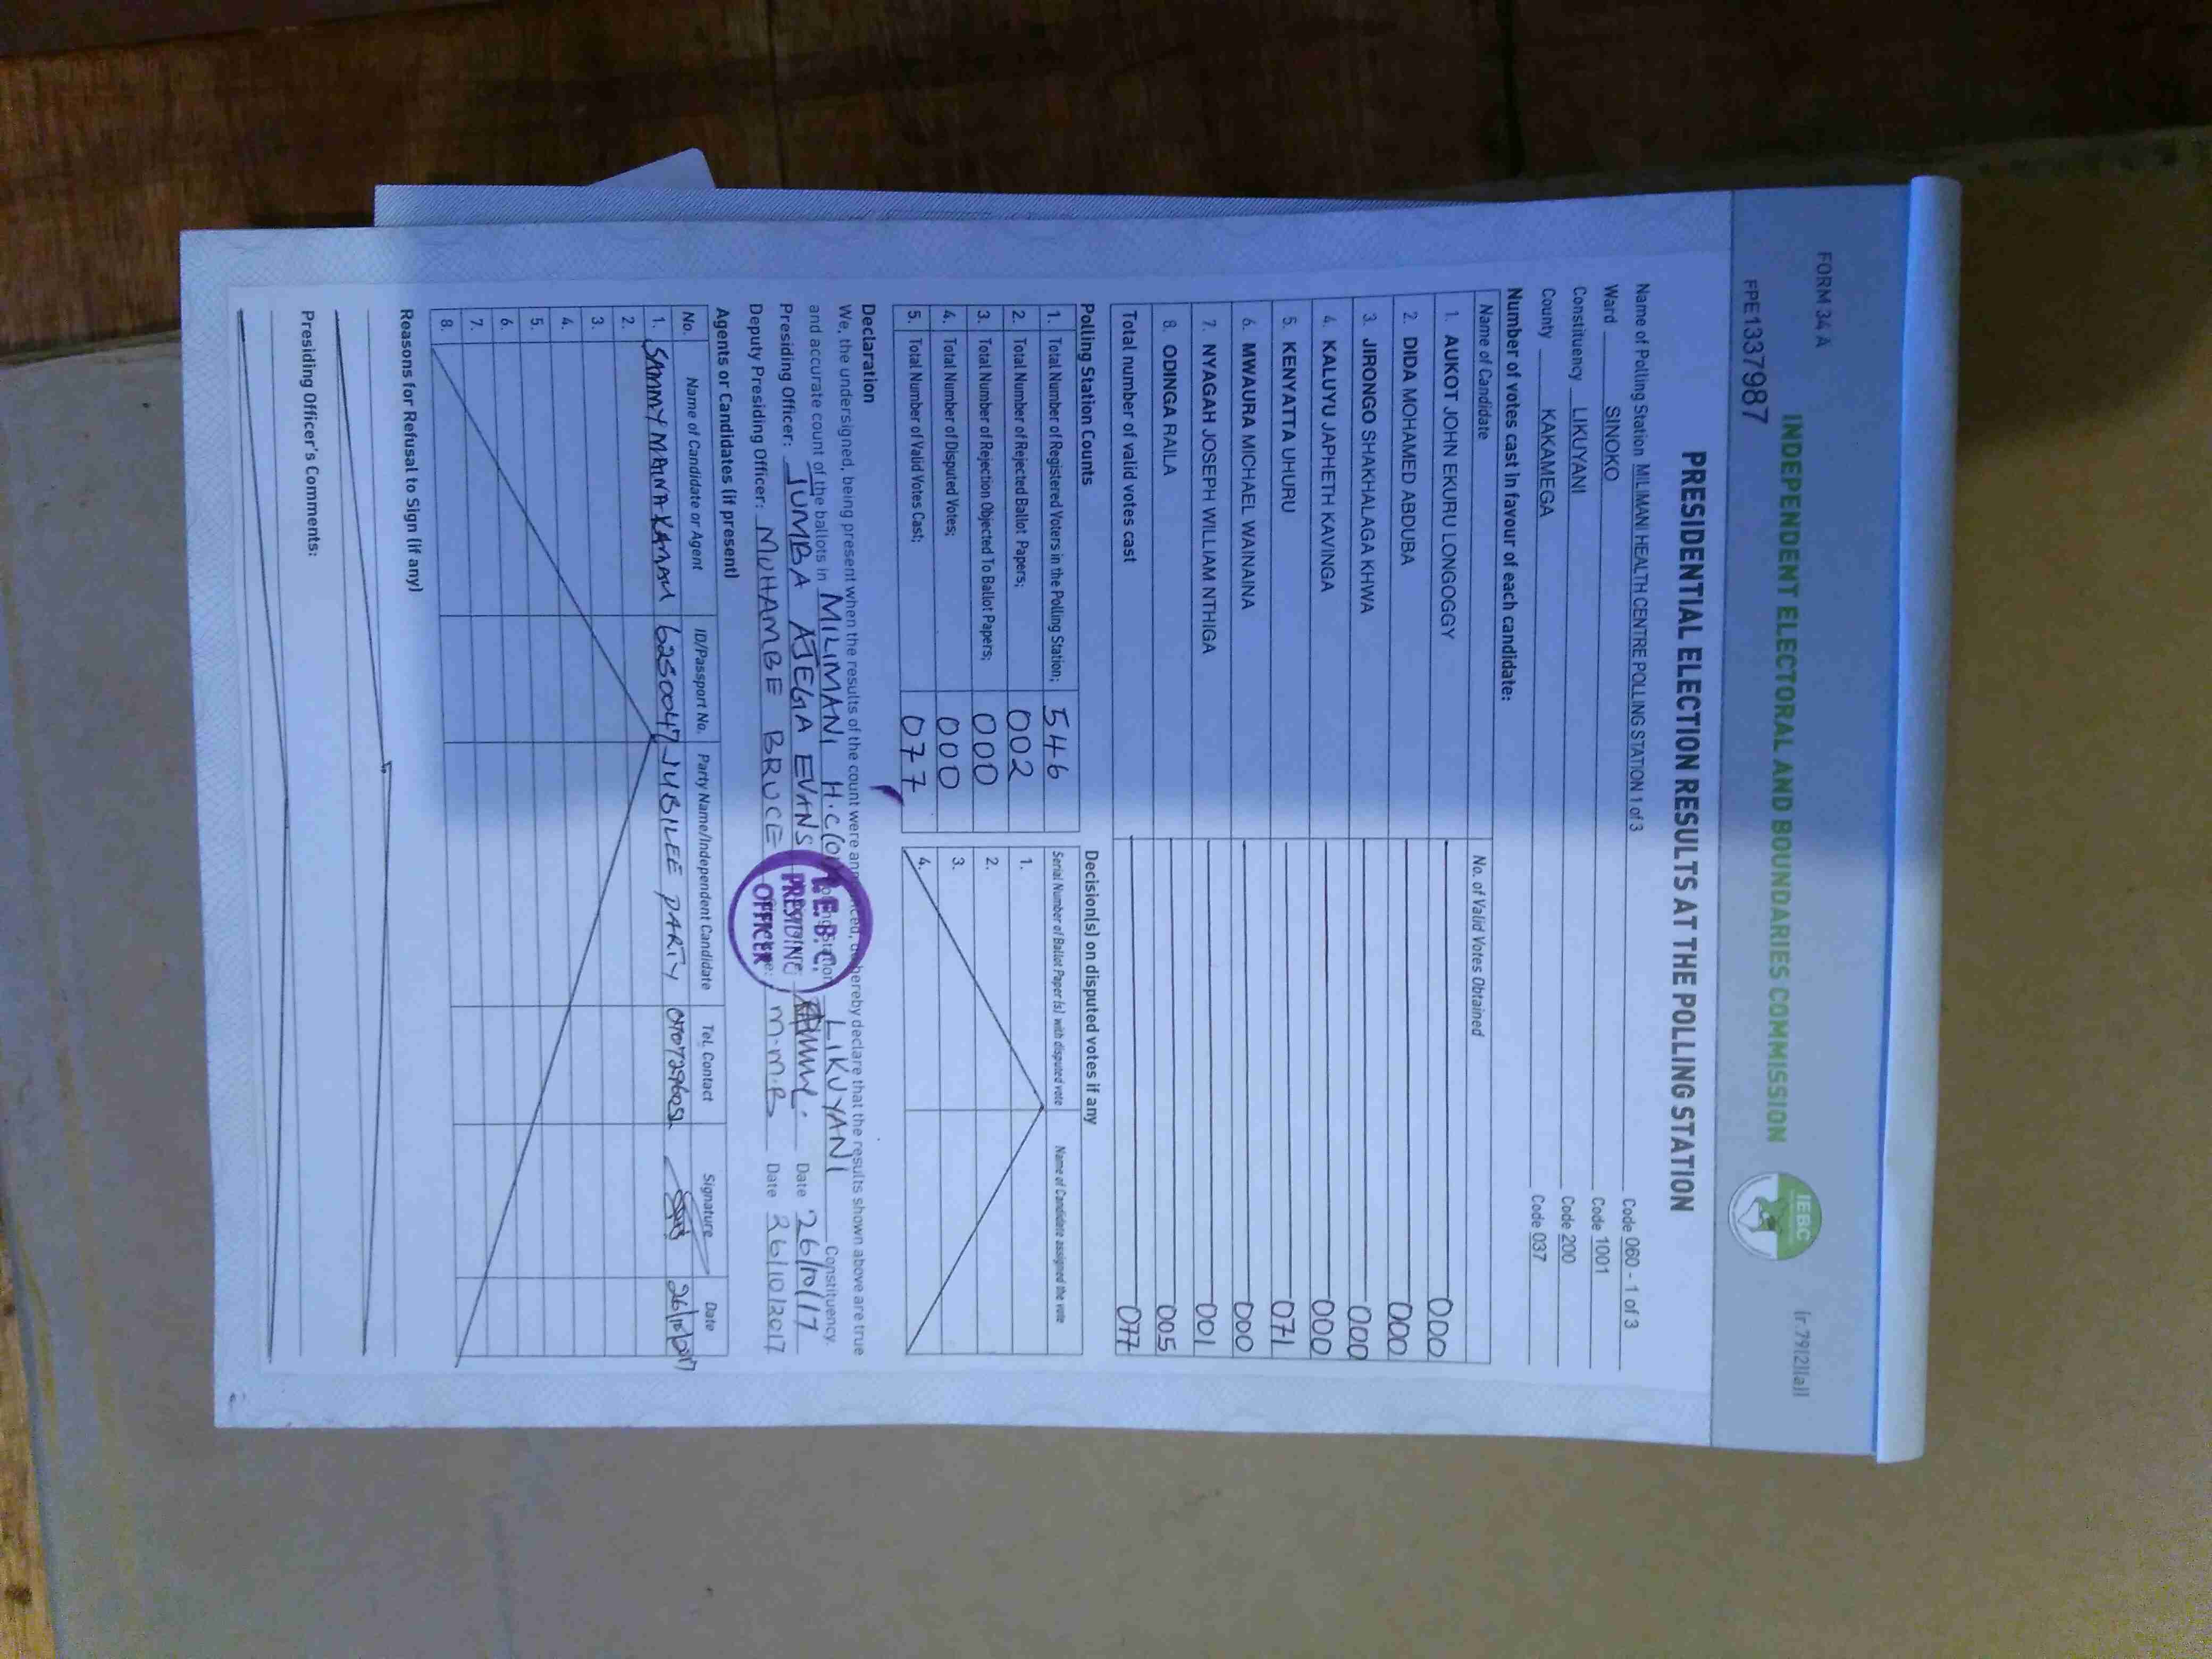 FORM 34 A
(r.79(2)(a))
INDEPENDENT ELECTORAL AND BOUNDARIES COMMISSION
IEBC
FPE1337987
PRESIDENTIAL ELECTION RESULTS AT THE POLLING STATION
Name of Polling Station MILIMANI HEALTH CENTRE POLLING STATION 1 of 3 Code 060 - 1 of 3
Ward SINOKO Code 1001
Constituency LIKUYANI Code 200
County KAKAMEGA Code 037
Number of votes cast in favour of each candidate:
Name of Candidate No. of Valid Votes Obtained
1. AUKOT JOHN EKURU LONGOGGY 000
2. DIDA MOHAMED ABDUBA 000
3. JIRONGO SHAKHALAGA KHWA 000
4. KALUYU JAPHETH KAVINGA 000
5. KENYATTA UHURU 071
6. MWAURA MICHAEL WAINAINA 000
7. NYAGAH JOSEPH WILLIAM NTHIGA 001
8. ODINGA RAILA 005
Total number of valid votes cast 077
Polling Station Counts
1. Total Number of Registered Voters in the Polling Station; 546
2. Total Number of Rejected Ballot Papers; 002
3. Total Number of Rejection Objected To Ballot Papers; 000
4. Total Number of Disputed Votes; 000
5. Total Number of Valid Votes Cast; 077
Decision(s) on disputed votes if any
Serial Number of Ballot Paper (s) with disputed vote Name of Candidate assigned the vote
1.
2.
3.
4.
Declaration
We, the undersigned, being present when the results of the count were announced, do hereby declare that the results shown above are true
and accurate count of the ballots in MILIMANI H.C Polling Station LIKUYANI Constituency.
Presiding Officer: JUMBA AJEGA EVANS Date 26/10/17
Deputy Presiding Officer: MUHAMBE BRUCE M.M.B Date 26/10/2017
I.E.B.C.
PRESIDING
OFFICER
Agents or Candidates (if present)
No. Name of Candidate or Agent ID/Passport No. Party Name/Independent Candidate Tel. Contact Signature Date
1. SAMMY MAINA KAMAU 6250047 JUBILEE PARTY 26/10/2017
2.
3.
4.
5.
6.
7.
8.
Reasons for Refusal to Sign (if any)
Presiding Officer's Comments: